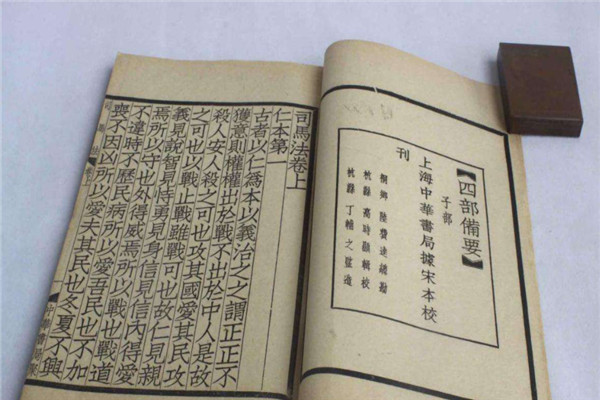 【四部備要】
子部
上海中華書局據宋本校
刊
桐鄉 陸費逵 總勘
杭縣 高時顯 輯校
杭縣 丁輔之 監造
司馬法卷上
仁本第一
古者以仁為本以義治之之謂正正不
獲意則權權出於戰不出於中人是故
殺人安人殺之可也攻其國愛其民攻
之可也以戰止戰雖戰可也故仁見親
義見說智見恃勇見身信見信內得愛
焉所以守也外得威焉所以戰也戰道
不違時不歷民病所以愛吾民也不加
喪不因凶所以愛夫其民也冬夏不興